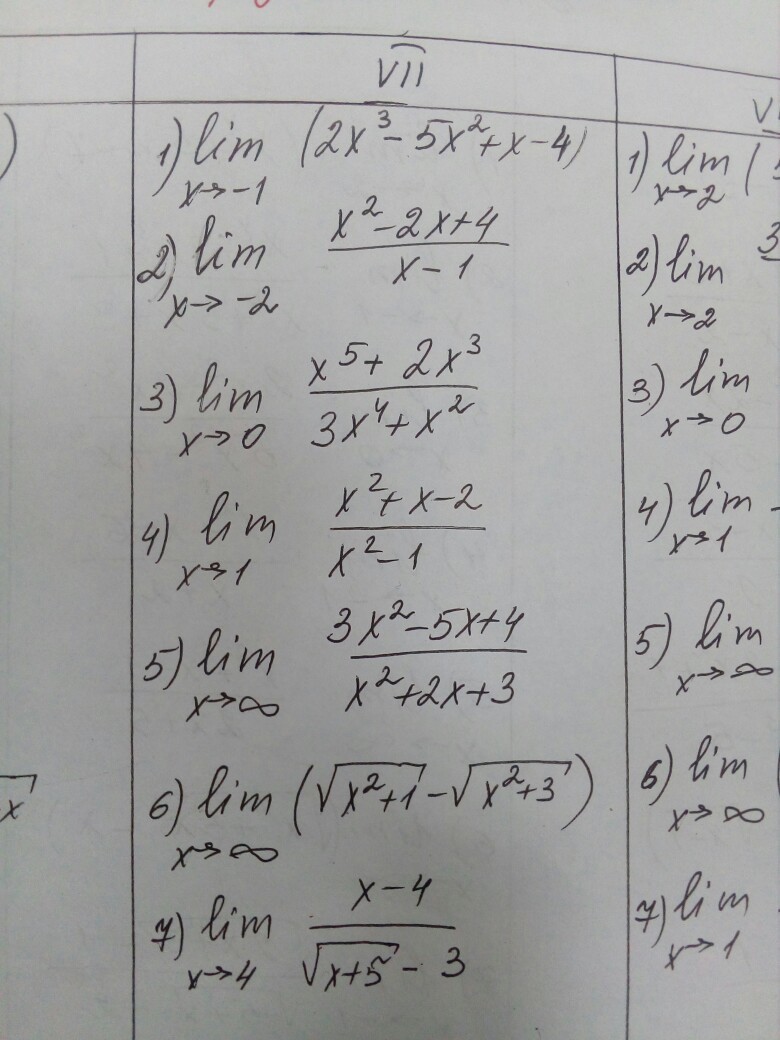 VII
1) lim x→-1 (2x³-5x²+x-4)
2) lim x→-2 (x²-2x+4)/(x-1)
3) lim x→0 (x⁵+2x³)/(3x⁴+x²)
4) lim x→1 (x²+x-2)/(x²-1)
5) lim x→∞ (3x²-5x+4)/(x²+2x+3)
6) lim x→∞ (√(x²+1)-√(x²+3))
7) lim x→4 (x-4)/(√(x+5)-3)
1) lim x→2 (
2) lim x→2
3) lim x→0
4) lim x→1
5) lim x→∞
6) lim x→∞
7) lim x→1